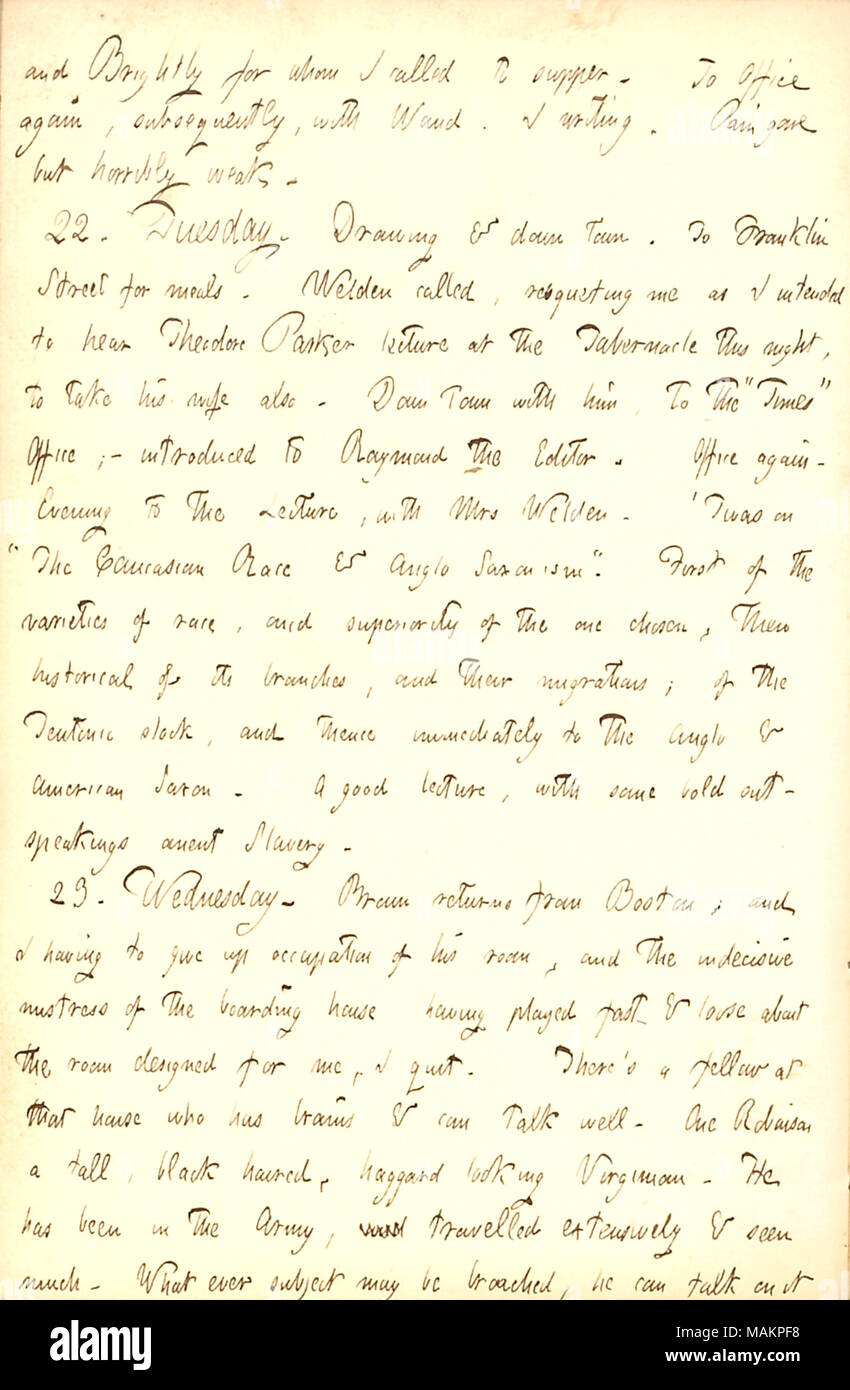 and Brightly for whom I called to supper. To Office
again, subsequently, with Waud. I writing. Pain gone
but horribly weak.
22. Tuesday. Drawing & down town. To Franklin
Street for meals. Welden called, requeting me as I intended
to hear Theodore Parker lecture at the Tabernacle this night,
to take his wife also. Down Town with him, to the "Times"
Office;- introduced to Raymond the Editor. Office again.
Evening to the Lecture, with Mrs Welden. 'Twas on
"The Caucasian Race & Anglo Saxonism". First of the
varieties of race, and superiority of the one chosen, then
historical of its branches, and their migrations; of the
Teutonic stock, and thence immediately to the Anglo &
American Saxon. A good lecture, with some bold out-
speakings anent Slavery.
23. Wednesday. Brown returns from Boston; and
I having to give up occupation of his room, and the indecisive
mistress of the boarding house having played fast & loose about
the room designed for me, I quit. There's a fellow at
that house who has brains & can talk well. One Robinson
a tall, black haired, haggard looking Virginian. He
has been in the Army, travelled extensively & seen
much. What ever subject may be broached, he can talk on it
alamy
Image ID: MAKPF8
www.alamy.com